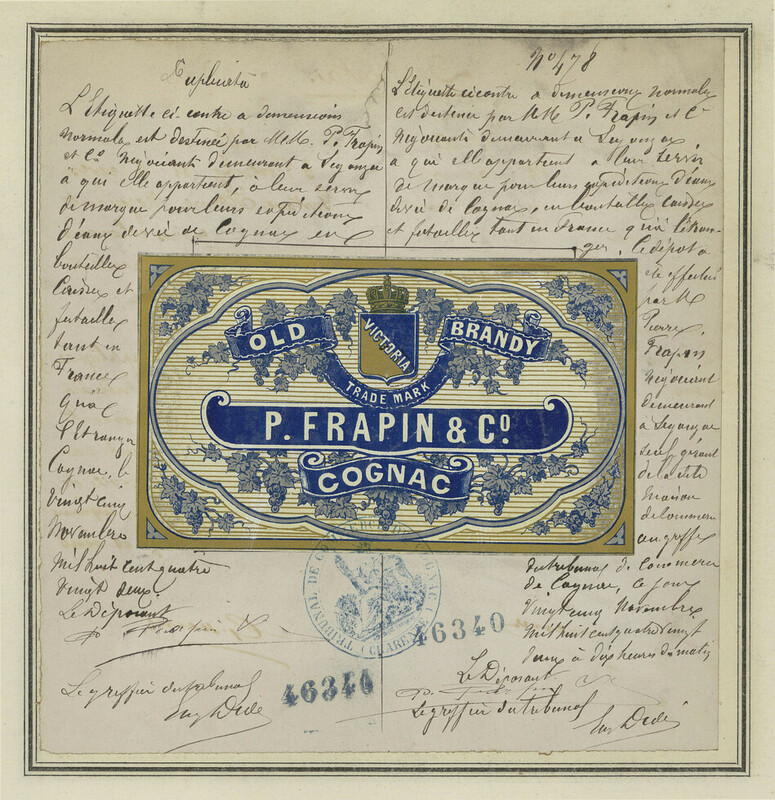 Duplicata
L'étiquette ci-contre a dimensions
normales est destinée par M.M. P. Frapin
et Cie Négociants demeurant à Segonzac
à qui elle appartient, à leur servir
de marque pour leurs expéditions
d'eaux de vie de Cognac en
bouteilles
Caisses et
futailles
tant en
France
qu'à
l'Etranger
Cognac, le
vingt cinq
Novembre
mil huit cent quatre
vingt deux.
Le Déposant
P. Frapin
Le greffier du tribunal
Eug Dedé
No 478
L'étiquette ci contre à dimensions normales
est destinée par MM P. Frapin et Cie
Négociants demeurant à Segonzac
à qui elle appartient à leur servir
de marque pour leurs expéditions d'eaux
de vie de Cognac, en bouteilles caisses
et futailles tant en France qu'à l'étran-
ger. Le dépôt a
été effectué
par M
Pierre
Frapin
Négociant
demeurant
à Segonzac
seul gérant
de la dite
maison
de commerce
au greffe
du tribunal de commerce
de Cognac, ce jour
vingt cinq Novembre
mil huit cent quatre vingt
deux à dix heures du matin
Le Déposant
P. Frapin
Le greffier du tribunal
Eug Dedé
OLD BRANDY
VICTORIA
TRADE MARK
P. FRAPIN & Co
COGNAC
TRIBUNAL DE COMMERCE DE COGNAC (CHARENTE)
46340
46340